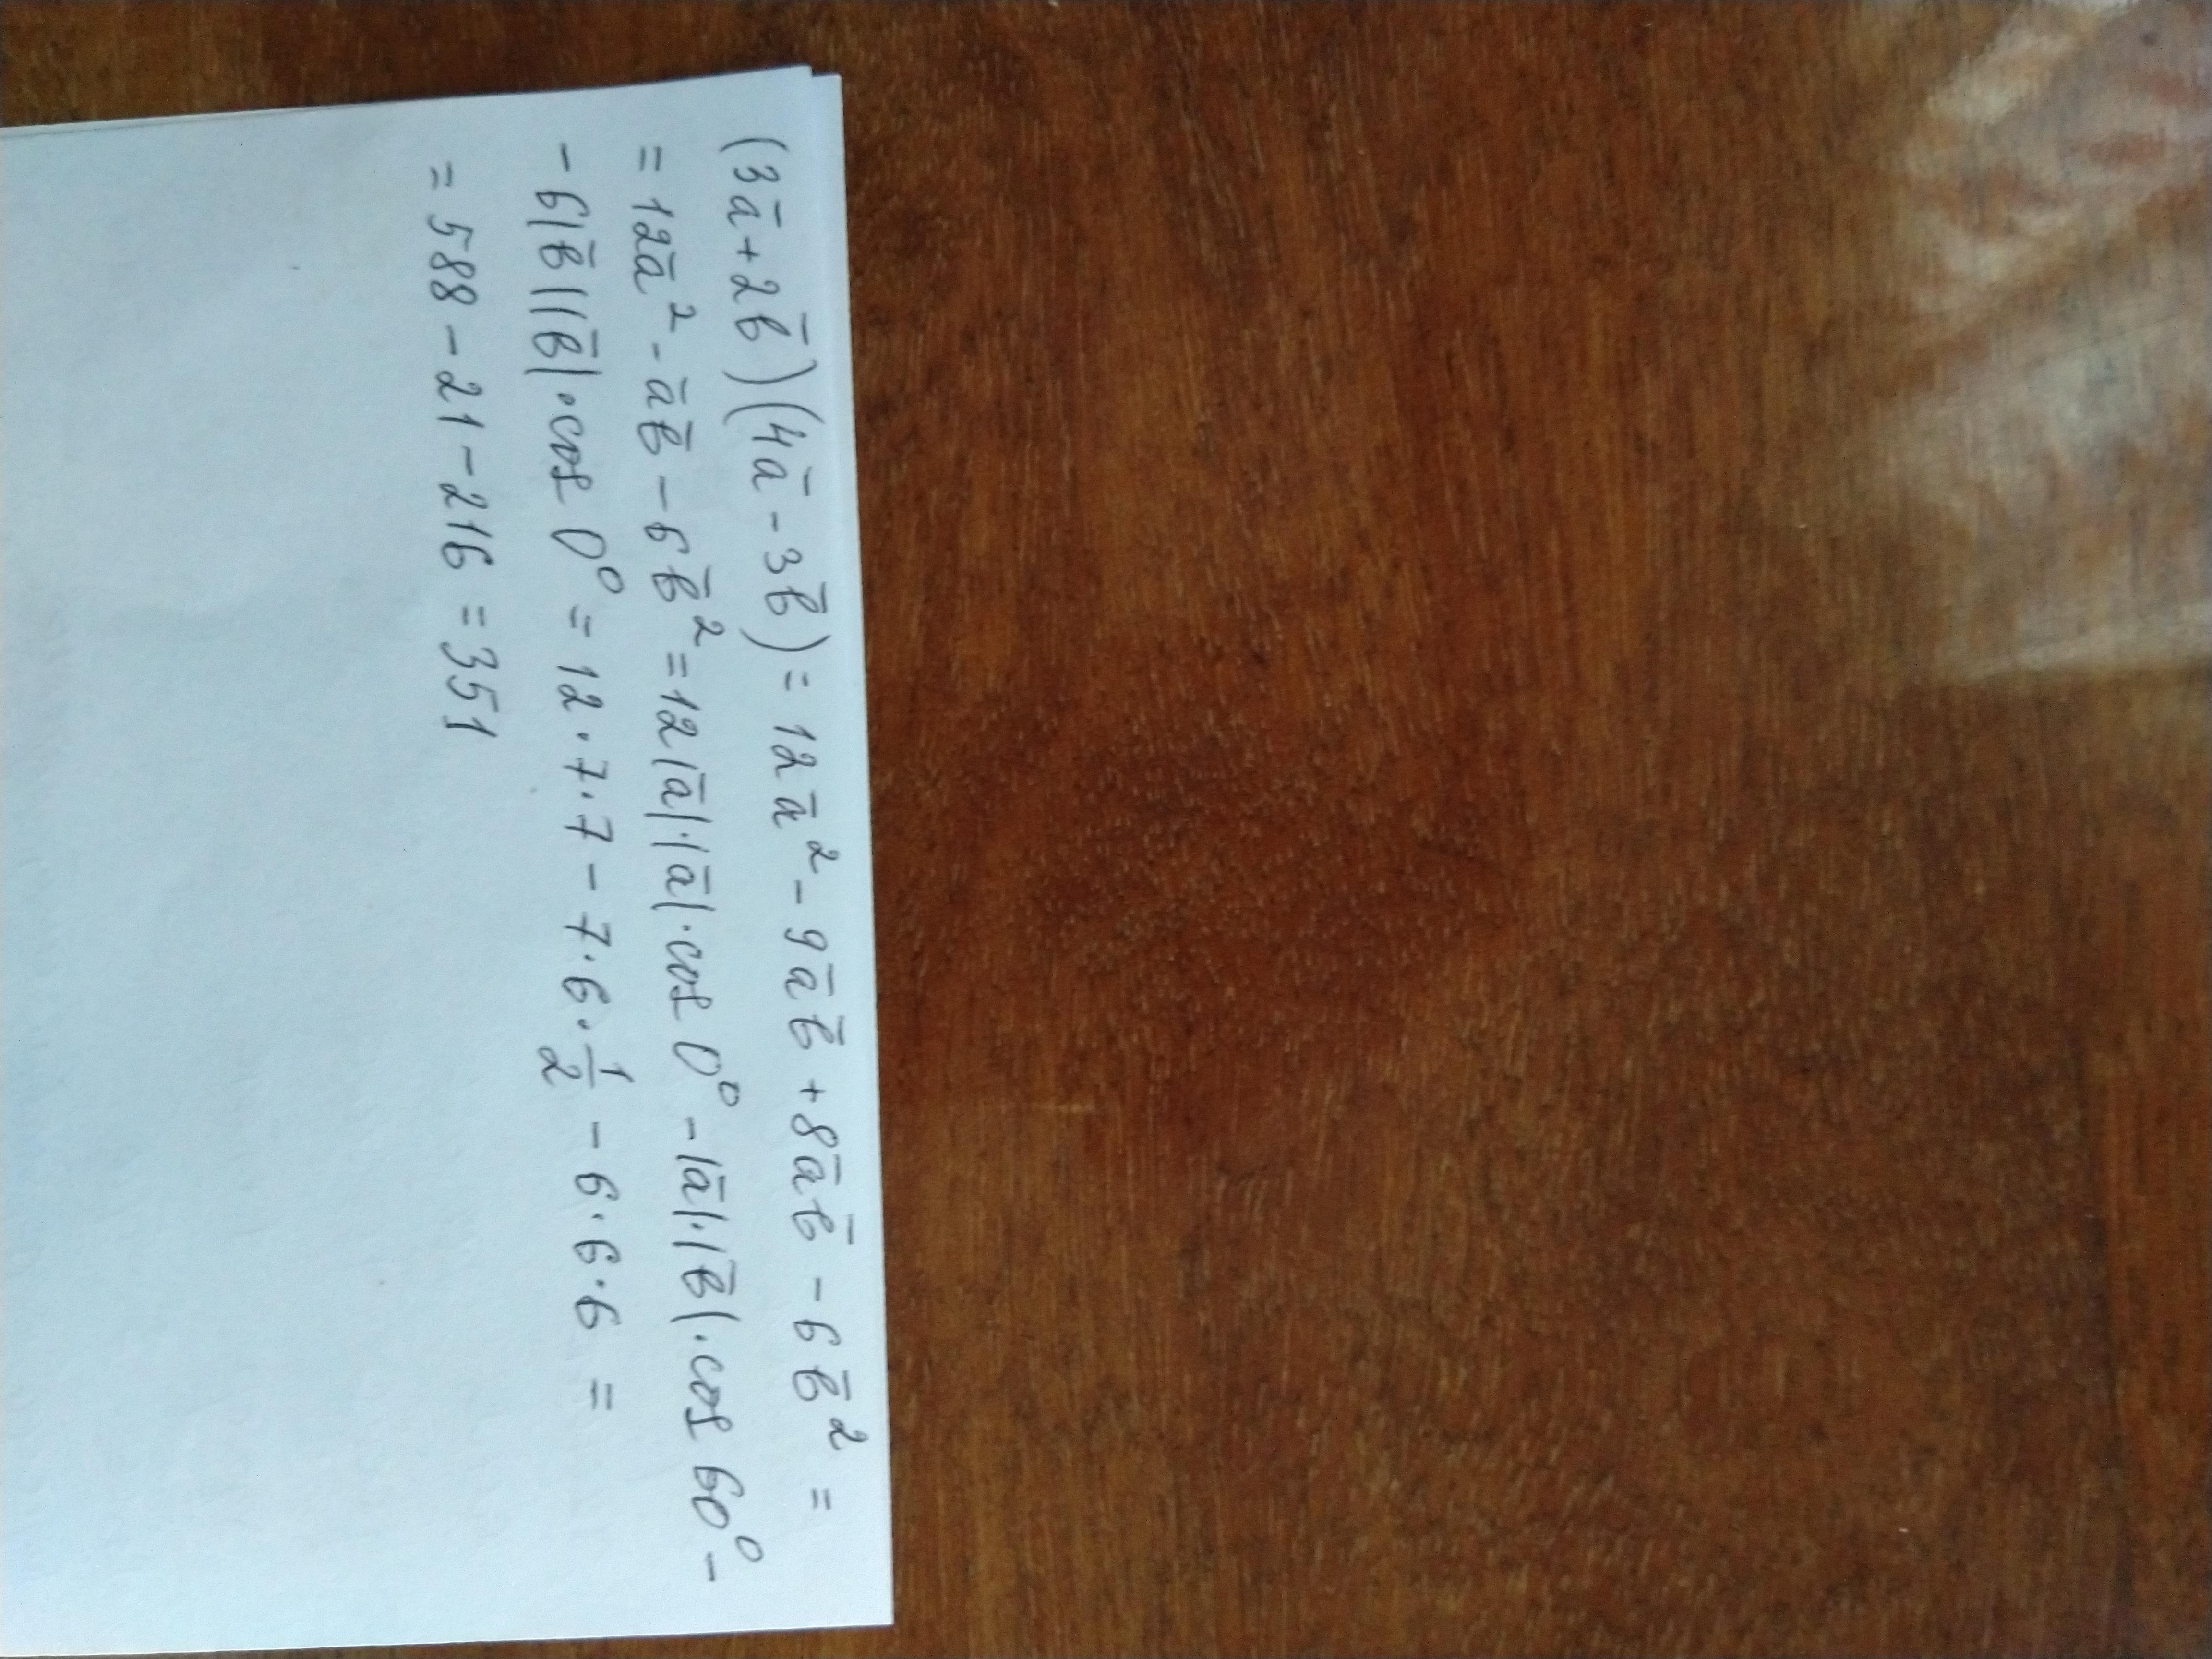 (3ā+2b̄)(4ā-3b̄)=12ā²-9āb̄+8āb̄-6b̄²=
=12ā²-āb̄-6b̄²=12|ā|·|ā|·cos 0°-|ā|·|b̄|·cos 60°-
-6|b̄||b̄|·cos 0°=12·7·7-7·6·1/2-6·6·6=
=588-21-216=351